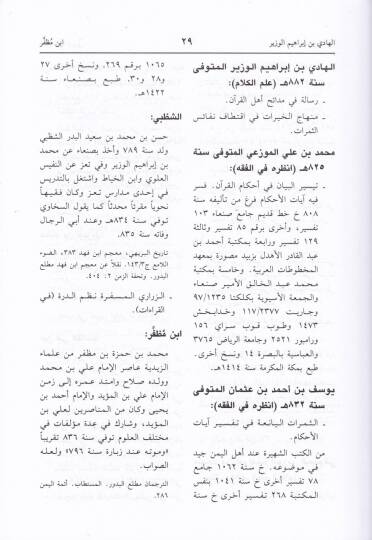 الهادي بن إبراهيم الوزير
٢٩
ابن مُظفَّر
الهادي بن إبراهيم الوزير المتوفى
سنة ٨٨٢هـ (علم الكلام):
ـ رسالة في مدائح أهل القرآن.
ـ منهاج الخيرات في اقتطاف نفائس
الثمرات.
محمد بن علي الموزعي المتوفى سنة
٨٢٥هـ (انظره في الفقه):
ـ تيسير البيان في أحكام القرآن. فسر
فيه آيات الأحكام فرغ من تأليفه سنة
٨٠٨ خ خط قديم جامع صنعاء ١٠٣
تفسير، وأخرى رقم ٨٥ تفسير وثالثة
١٢٩ تفسير ورابعة بمكتبة أحمد بن
عبد القادر الأهدل بزبيد مصورة بمعهد
المخطوطات العربية. وخامسة بمكتبة
محمد عبد الخالق الأمير صنعاء
والجمعية الآسيوية بكلكتا ٩٧/١٢٣٥
وجاريت ١١٧/٢٣٧٧ وبخدابخش
١٤٧٣ وطوب قبو سراي ١٥٦
ورامبور ٢٥٢١ وجامعة الرياض ٣٧٦٥
والعباسية بالبصرة ١٤ ونسخ أخرى.
طبع بمكة المكرمة سنة ١٤١٤هـ.
يوسف بن أحمد بن عثمان المتوفى
سنة ٨٣٢هـ (انظره في الفقه):
ـ الثمرات اليانعة في تفسير آيات
الأحكام.
من الكتب الشهيرة عند أهل اليمن جيد
في موضوعه. خ سنة ١٠٦٢ جامع
٧٨ تفسير أخرى خ سنة ١٠٤١ بنفس
المكتبة ٢٦٨ تفسير أخرى خ سنة
١٠٦٥ برقم ٢٦٩، ونسخ أخرى ٢٧
و٢٨ و٣٠. طبع بصنعاء سنة
١٤٢٢هـ.
الشظبي:
حسن بن محمد بن سعيد البدر الشظبي
ولد سنة ٧٨٩ وأخذ بصنعاء عن محمد
بن إبراهيم الوزير وفي تعز عن النفيس
العلوي وابن الخياط واشتغل بالتدريس
في إحدى مدارس تعز وكان فقيهاً
نحوياً مقرئاً محدثاً كما يقول السخاوي
توفي سنة ٨٣٤هـ وعند أبي الرجال
وفاته سنة ٨٣٥.
تاريخ البريهي، معجم ابن فهد ٣٨٣، الضوء
اللامع ج١٤٣/٣. نقلاً عن معجم ابن فهد مطلع
البدور، وتحفة الزمن ٢: ٤٠٤.
ـ الزراري المسفرة نظم الدرة (في
القراءات).
ابن مُظفَّر:
محمد بن حمزة بن مظفر من علماء
الزيدية عاصر الإمام علي بن محمد
وولده صلاح وامتد عمره إلى زمن
الإمام علي بن المؤيد والإمام أحمد بن
يحيى وكان من المناصرين لعلي بن
المؤيد، وشارك في عدة مؤلفات في
مختلف العلوم توفي سنة ٨٣٦ تقريباً
«وموته عند زبارة سنة ٧٩٦» ولعله
الصواب.
الترجمان مطلع البدور. المستطاب. أئمة اليمن
٢٨٦.